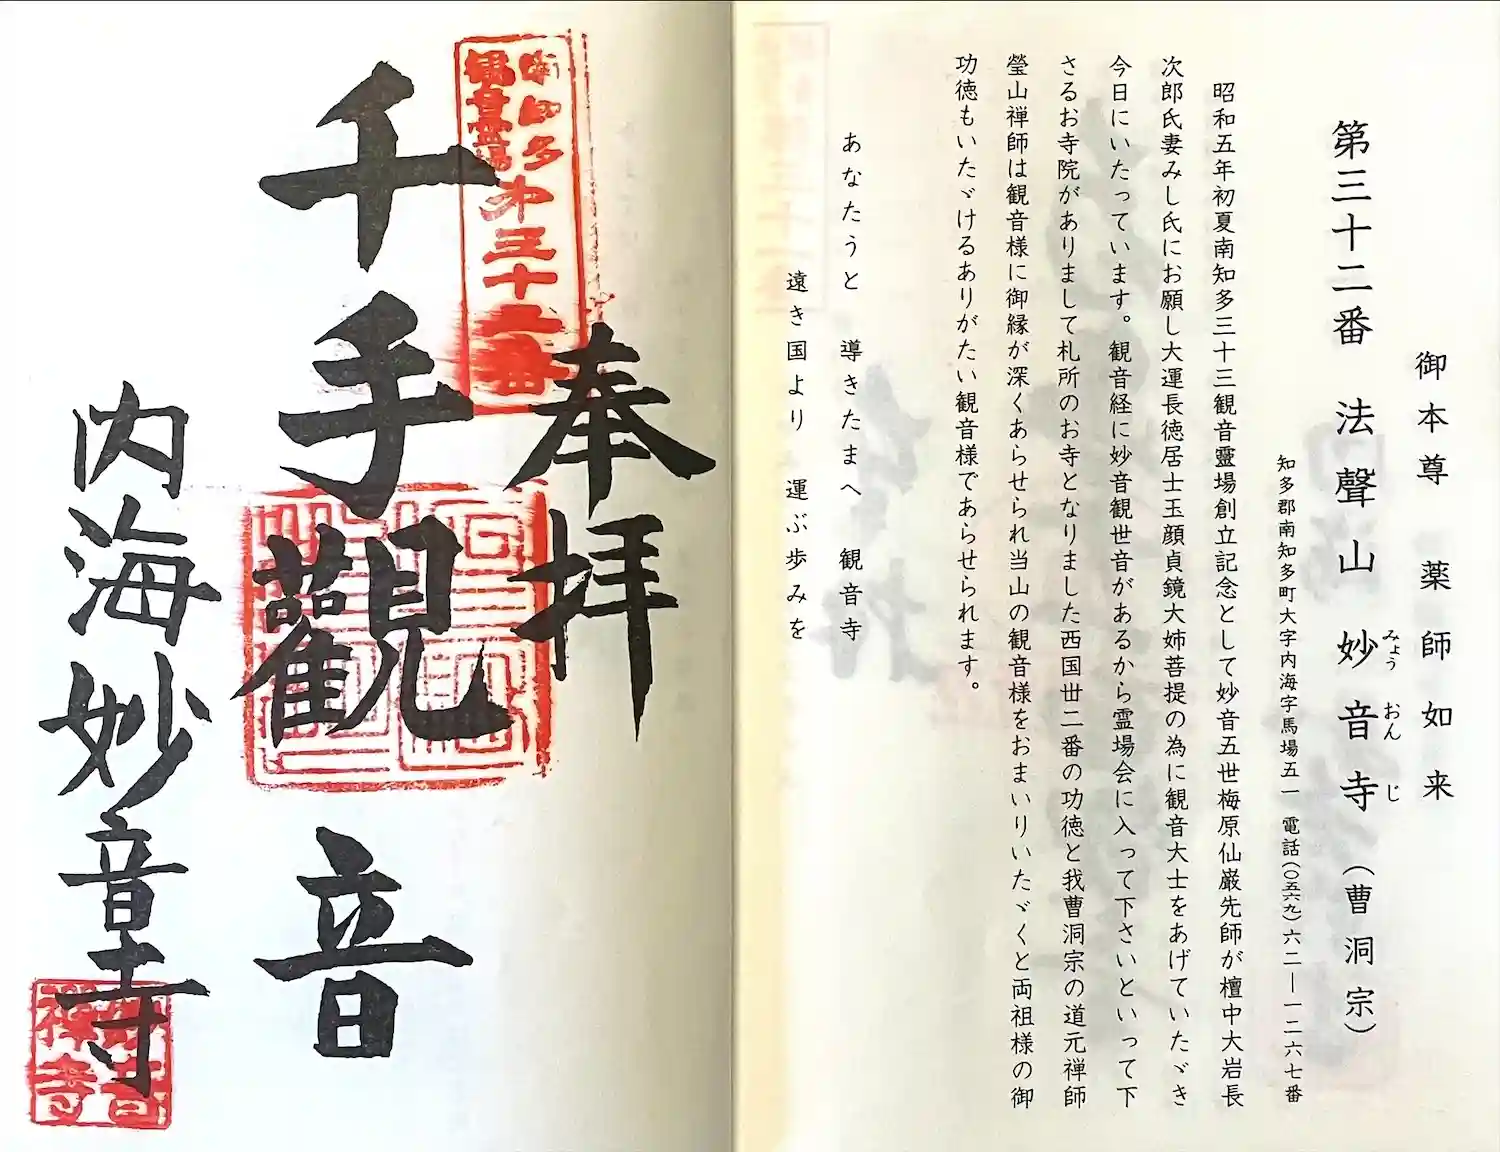 御本尊 薬師如来
第三十二番 法聲山 妙音寺（曹洞宗）
みょう おん じ
知多郡南知多町大字内海字馬場五一 電話（〇五六九）六二―一二六七番
昭和五年初夏南知多三十三観音靈場創立記念として妙音五世梅原仙巌先師が檀中大岩長
次郎氏妻みし氏にお願し大運長徳居士玉顔貞鏡大姉菩提の為に観音大士をあげていたゞき
今日にいたっています。観音経に妙音観世音があるから霊場会に入って下さいといって下
さるお寺院がありまして札所のお寺となりました西国丗二番の功徳と我曹洞宗の道元禅師
瑩山禅師は観音様に御縁が深くあらせられ当山の観音様をおまいりいたゞくと両祖様の御
功徳もいたゞけるありがたい観音様であらせられます。
あなたうと 導きたまへ 観音寺
遠き国より 運ぶ歩みを
奉拝
南知多
観音霊場
第三十二番
千手觀音
内海妙音寺